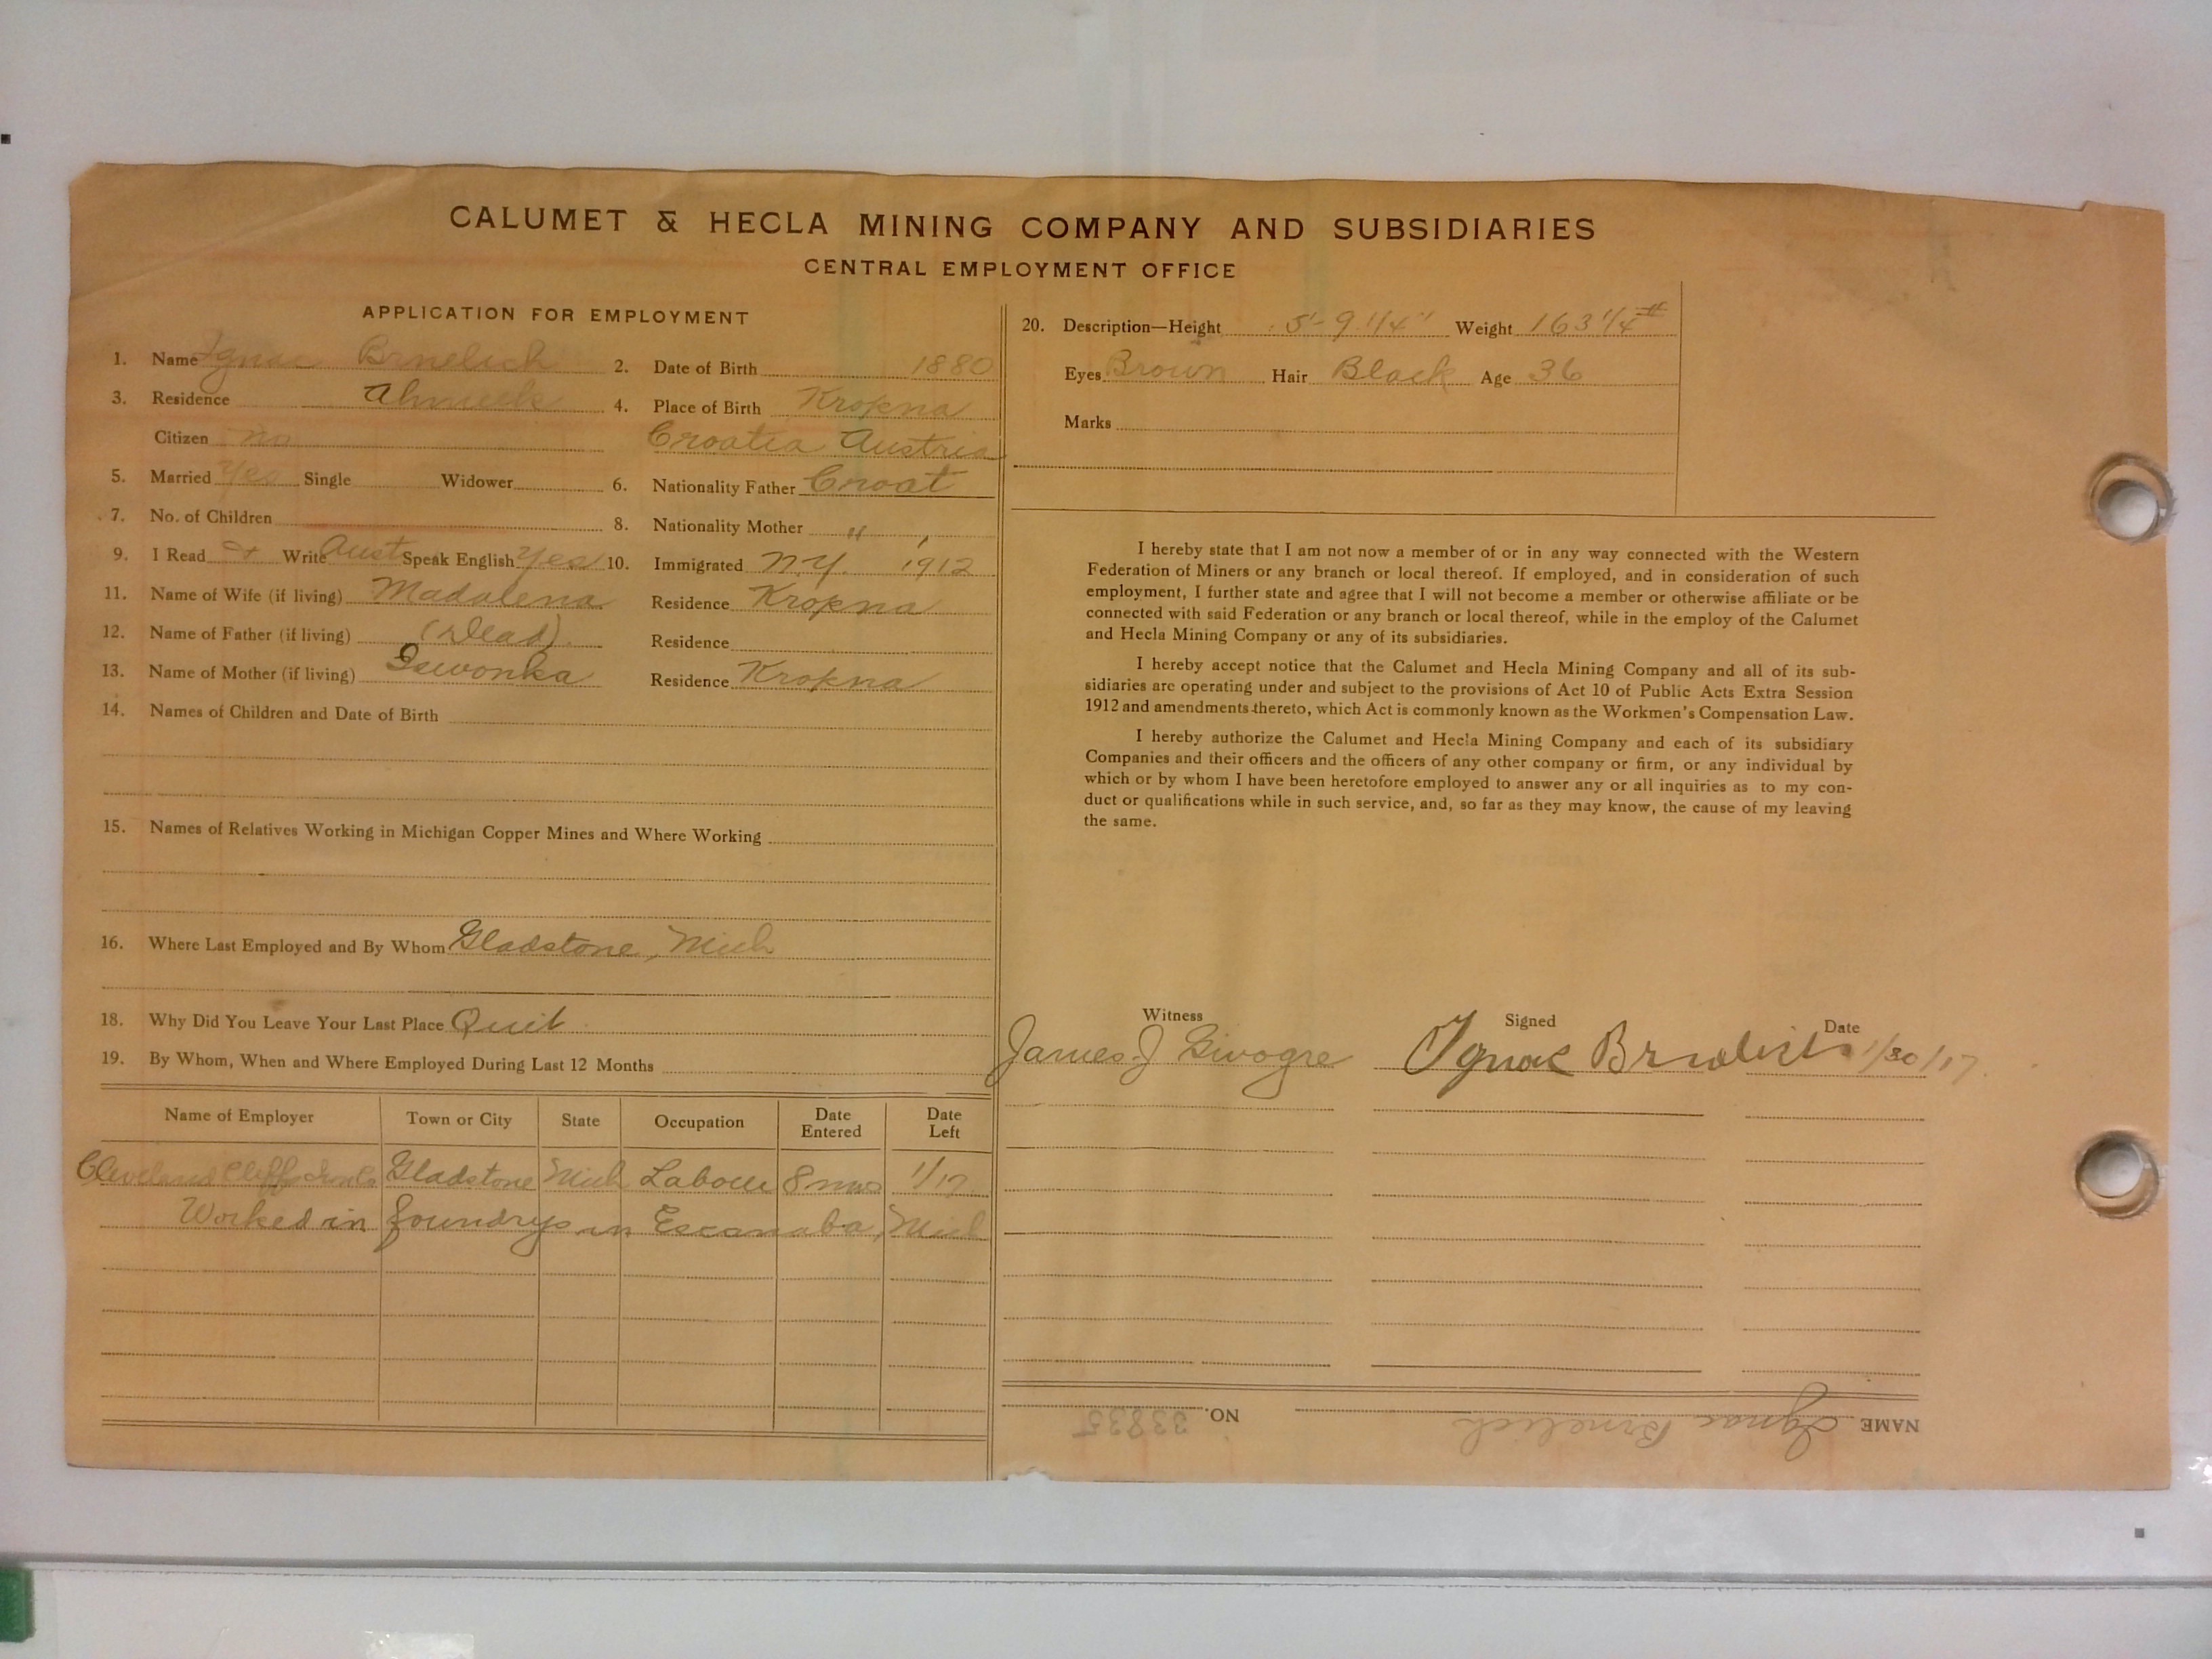 CALUMET & HECLA MINING COMPANY AND SUBSIDIARIES
CENTRAL EMPLOYMENT OFFICE
APPLICATION FOR EMPLOYMENT
1. Name Ignac Brnelich 2. Date of Birth 1880
3. Residence Ahmeek 4. Place of Birth Kropna
Citizen no Croatia Austria
5. Married Yes Single Widower 6. Nationality Father Croat
7. No. of Children 8. Nationality Mother "
9. I Read + Write Aust Speak English Yes 10. Immigrated N.Y. 1912
11. Name of Wife (if living) Madalena Residence Kropna
12. Name of Father (if living) (Dead) Residence
13. Name of Mother (if living) Residence Kropna
14. Names of Children and Date of Birth
15. Names of Relatives Working in Michigan Copper Mines and Where Working
16. Where Last Employed and By Whom Gladstone, Mich
18. Why Did You Leave Your Last Place Quit
19. By Whom, When and Where Employed During Last 12 Months
Name of Employer Town or City State Occupation Date Entered Date Left
Cleveland Cliffs Gladstone Mich Labour 8 mos 1/17
Worked in foundrys in Escanaba, Mich
20. Description—Height 5'-9 1/4" Weight 163 1/4 #
Eyes Brown Hair Black Age 36
Marks
I hereby state that I am not now a member of or in any way connected with the Western
Federation of Miners or any branch or local thereof. If employed, and in consideration of such
employment, I further state and agree that I will not become a member or otherwise affiliate or be
connected with said Federation or any branch or local thereof, while in the employ of the Calumet
and Hecla Mining Company or any of its subsidiaries.
I hereby accept notice that the Calumet and Hecla Mining Company and all of its sub-
sidiaries are operating under and subject to the provisions of Act 10 of Public Acts Extra Session
1912 and amendments thereto, which Act is commonly known as the Workmen's Compensation Law.
I hereby authorize the Calumet and Hecla Mining Company and each of its subsidiary
Companies and their officers and the officers of any other company or firm, or any individual by
which or by whom I have been heretofore employed to answer any or all inquiries as to my con-
duct or qualifications while in such service, and, so far as they may know, the cause of my leaving
the same.
Witness Signed Date
James J Ignac 1/30/17
NAME Ignac Brnelich NO. 33835